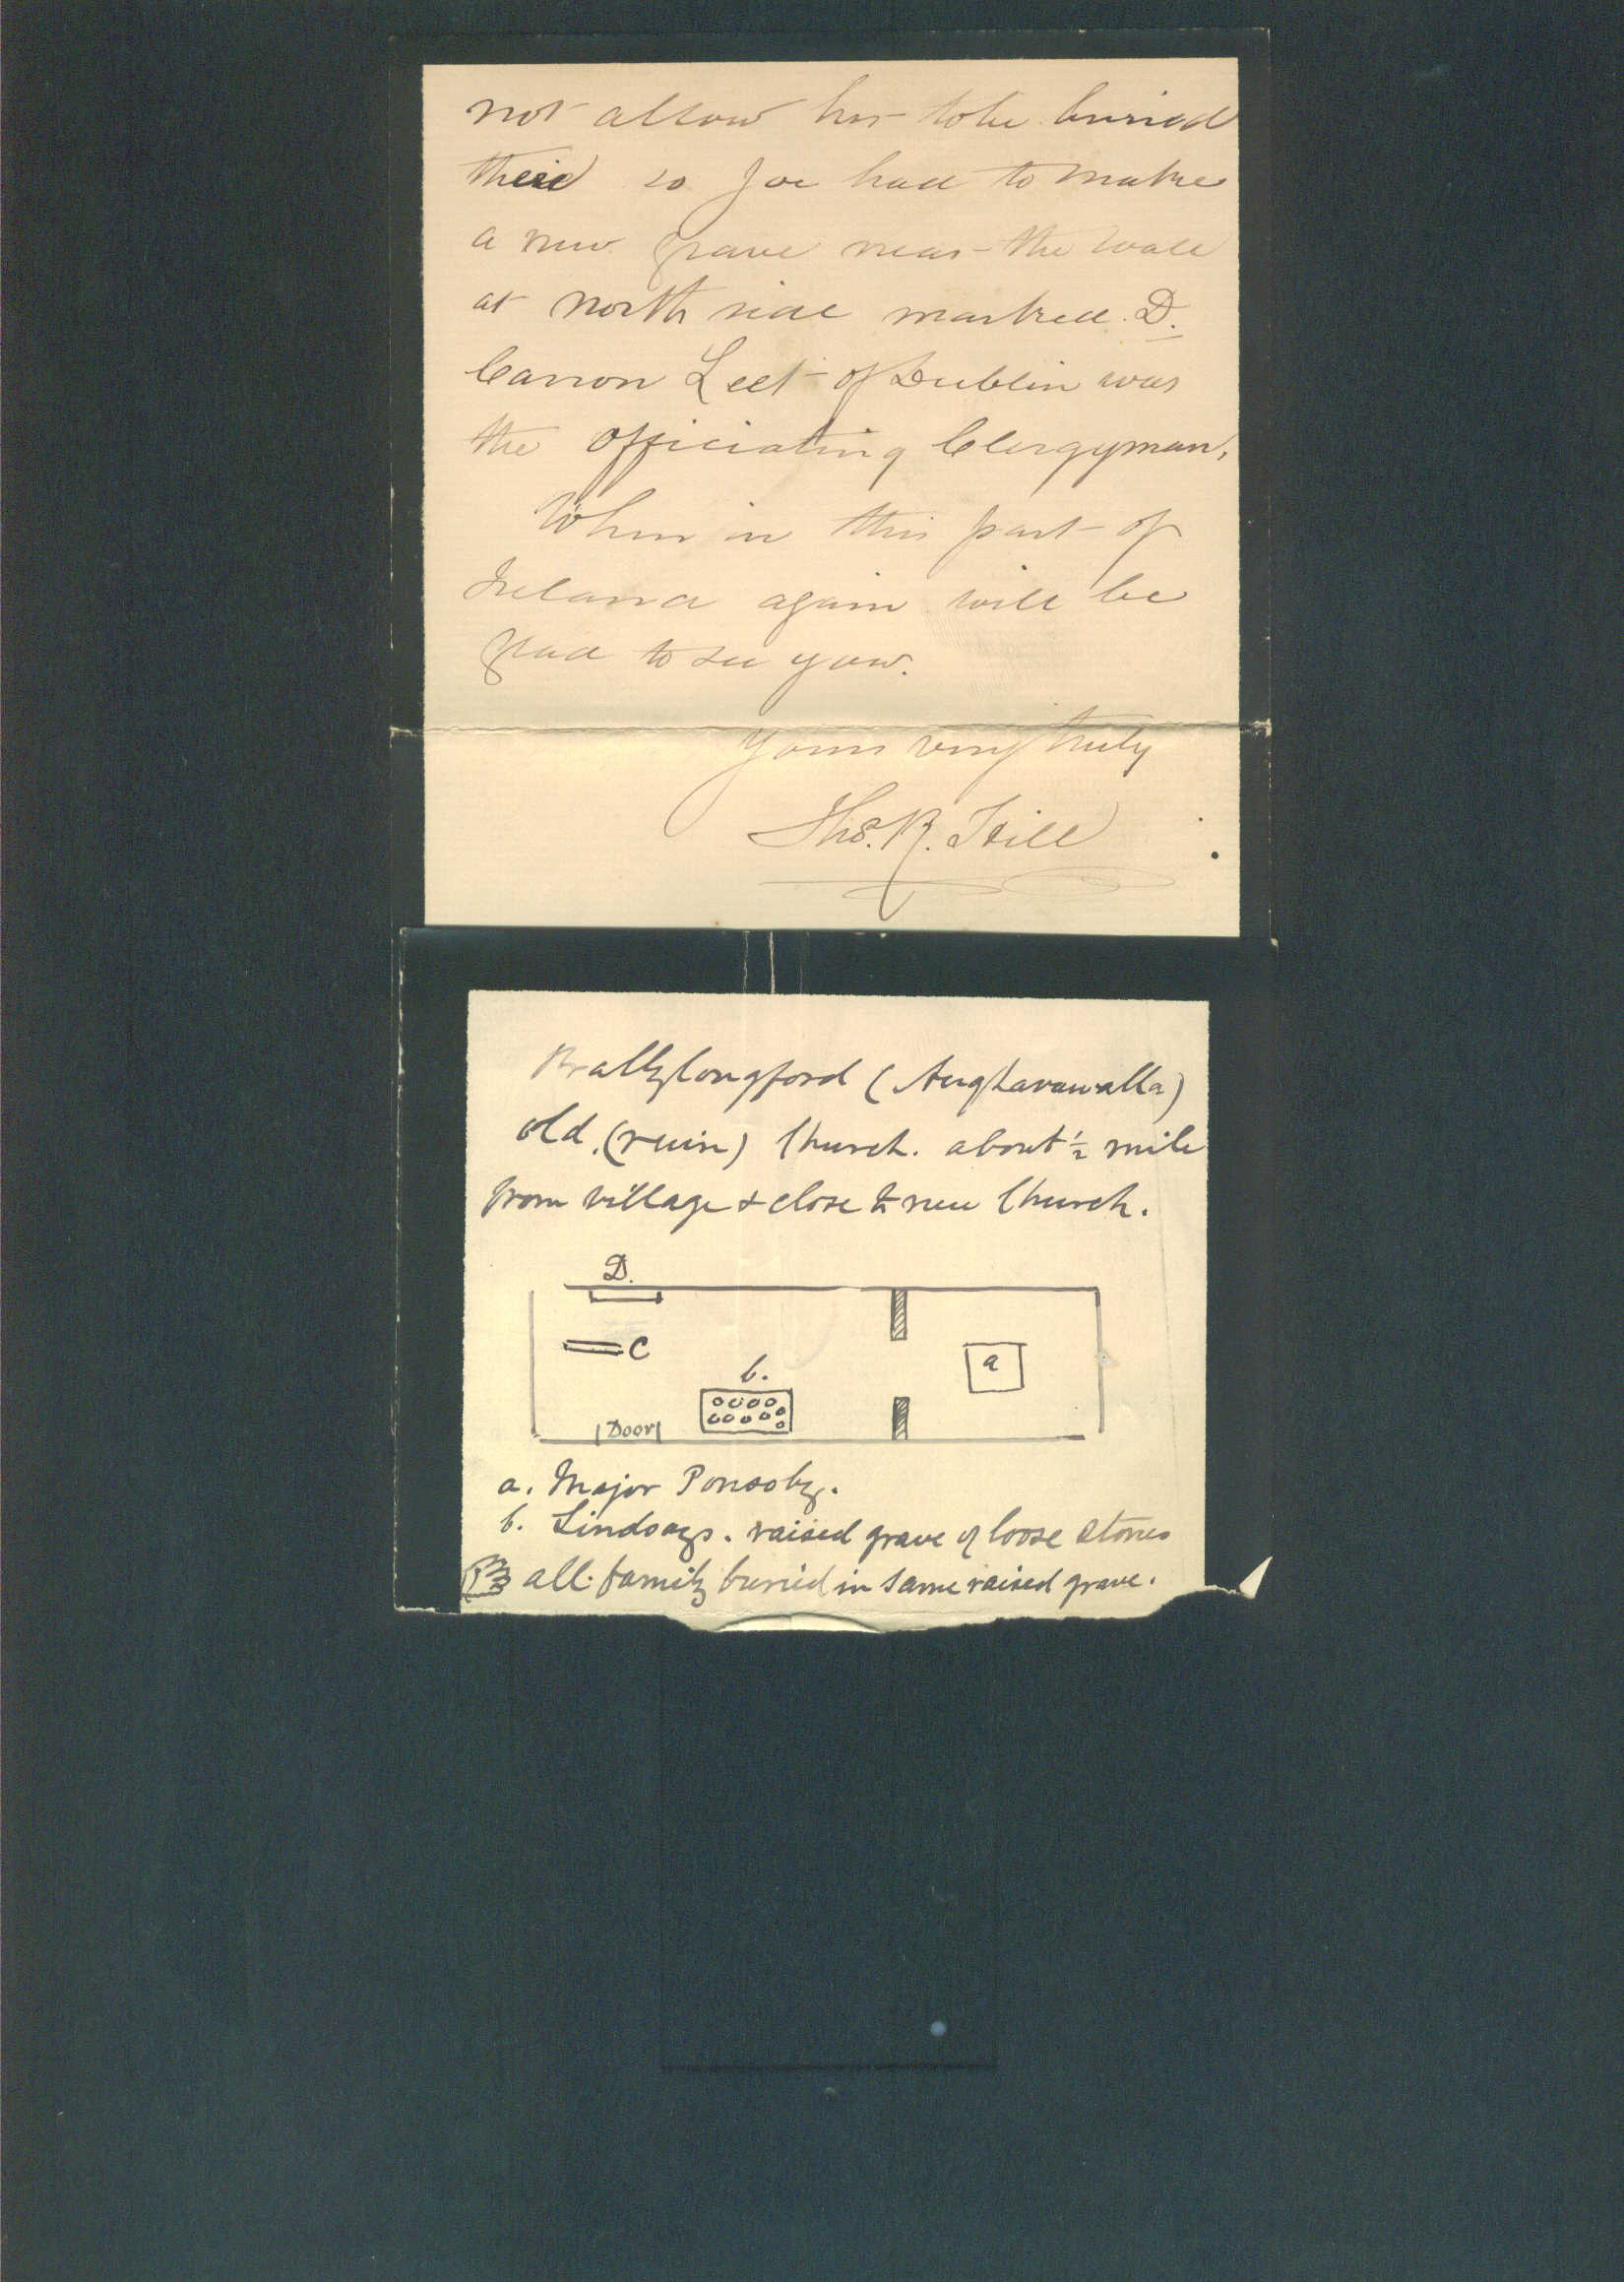 not allow her to be buried
there so Joe had to make
a new grave near the wall
at North side marked D.
Canon Leet of Dublin was
the officiating Clergyman.
When in this part of
Ireland again will be
glad to see you.
Yours very truly
Thos. R. Hill
Ballylongford (Aughavawalla)
old (ruin) Church. about ½ mile
from village & close to new Church.
D.
C
b.
a
Door
a. Major Ponsoby.
b. Lindsays. raised grave of loose stones
all family buried in same raised grave.